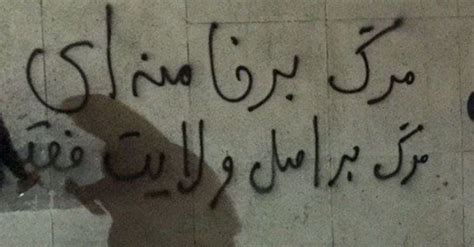 مرگ بر خامنه ای
مرگ بر اصل ولایت فقیه